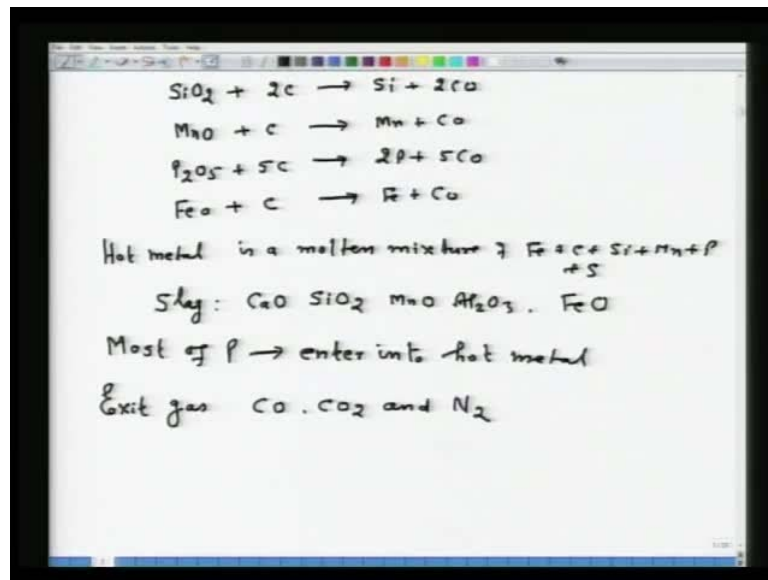 SiO2 + 2C → Si + 2CO
MnO + C → Mn + CO
P2O5 + 5C → 2P + 5CO
FeO + C → Fe + CO
Hot metal is a molten mixture of Fe + C + Si + Mn + P
+ S
Slag: CaO SiO2 MnO Al2O3. FeO
Most of P → enter into hot metal
Exit gas CO. CO2 and N2